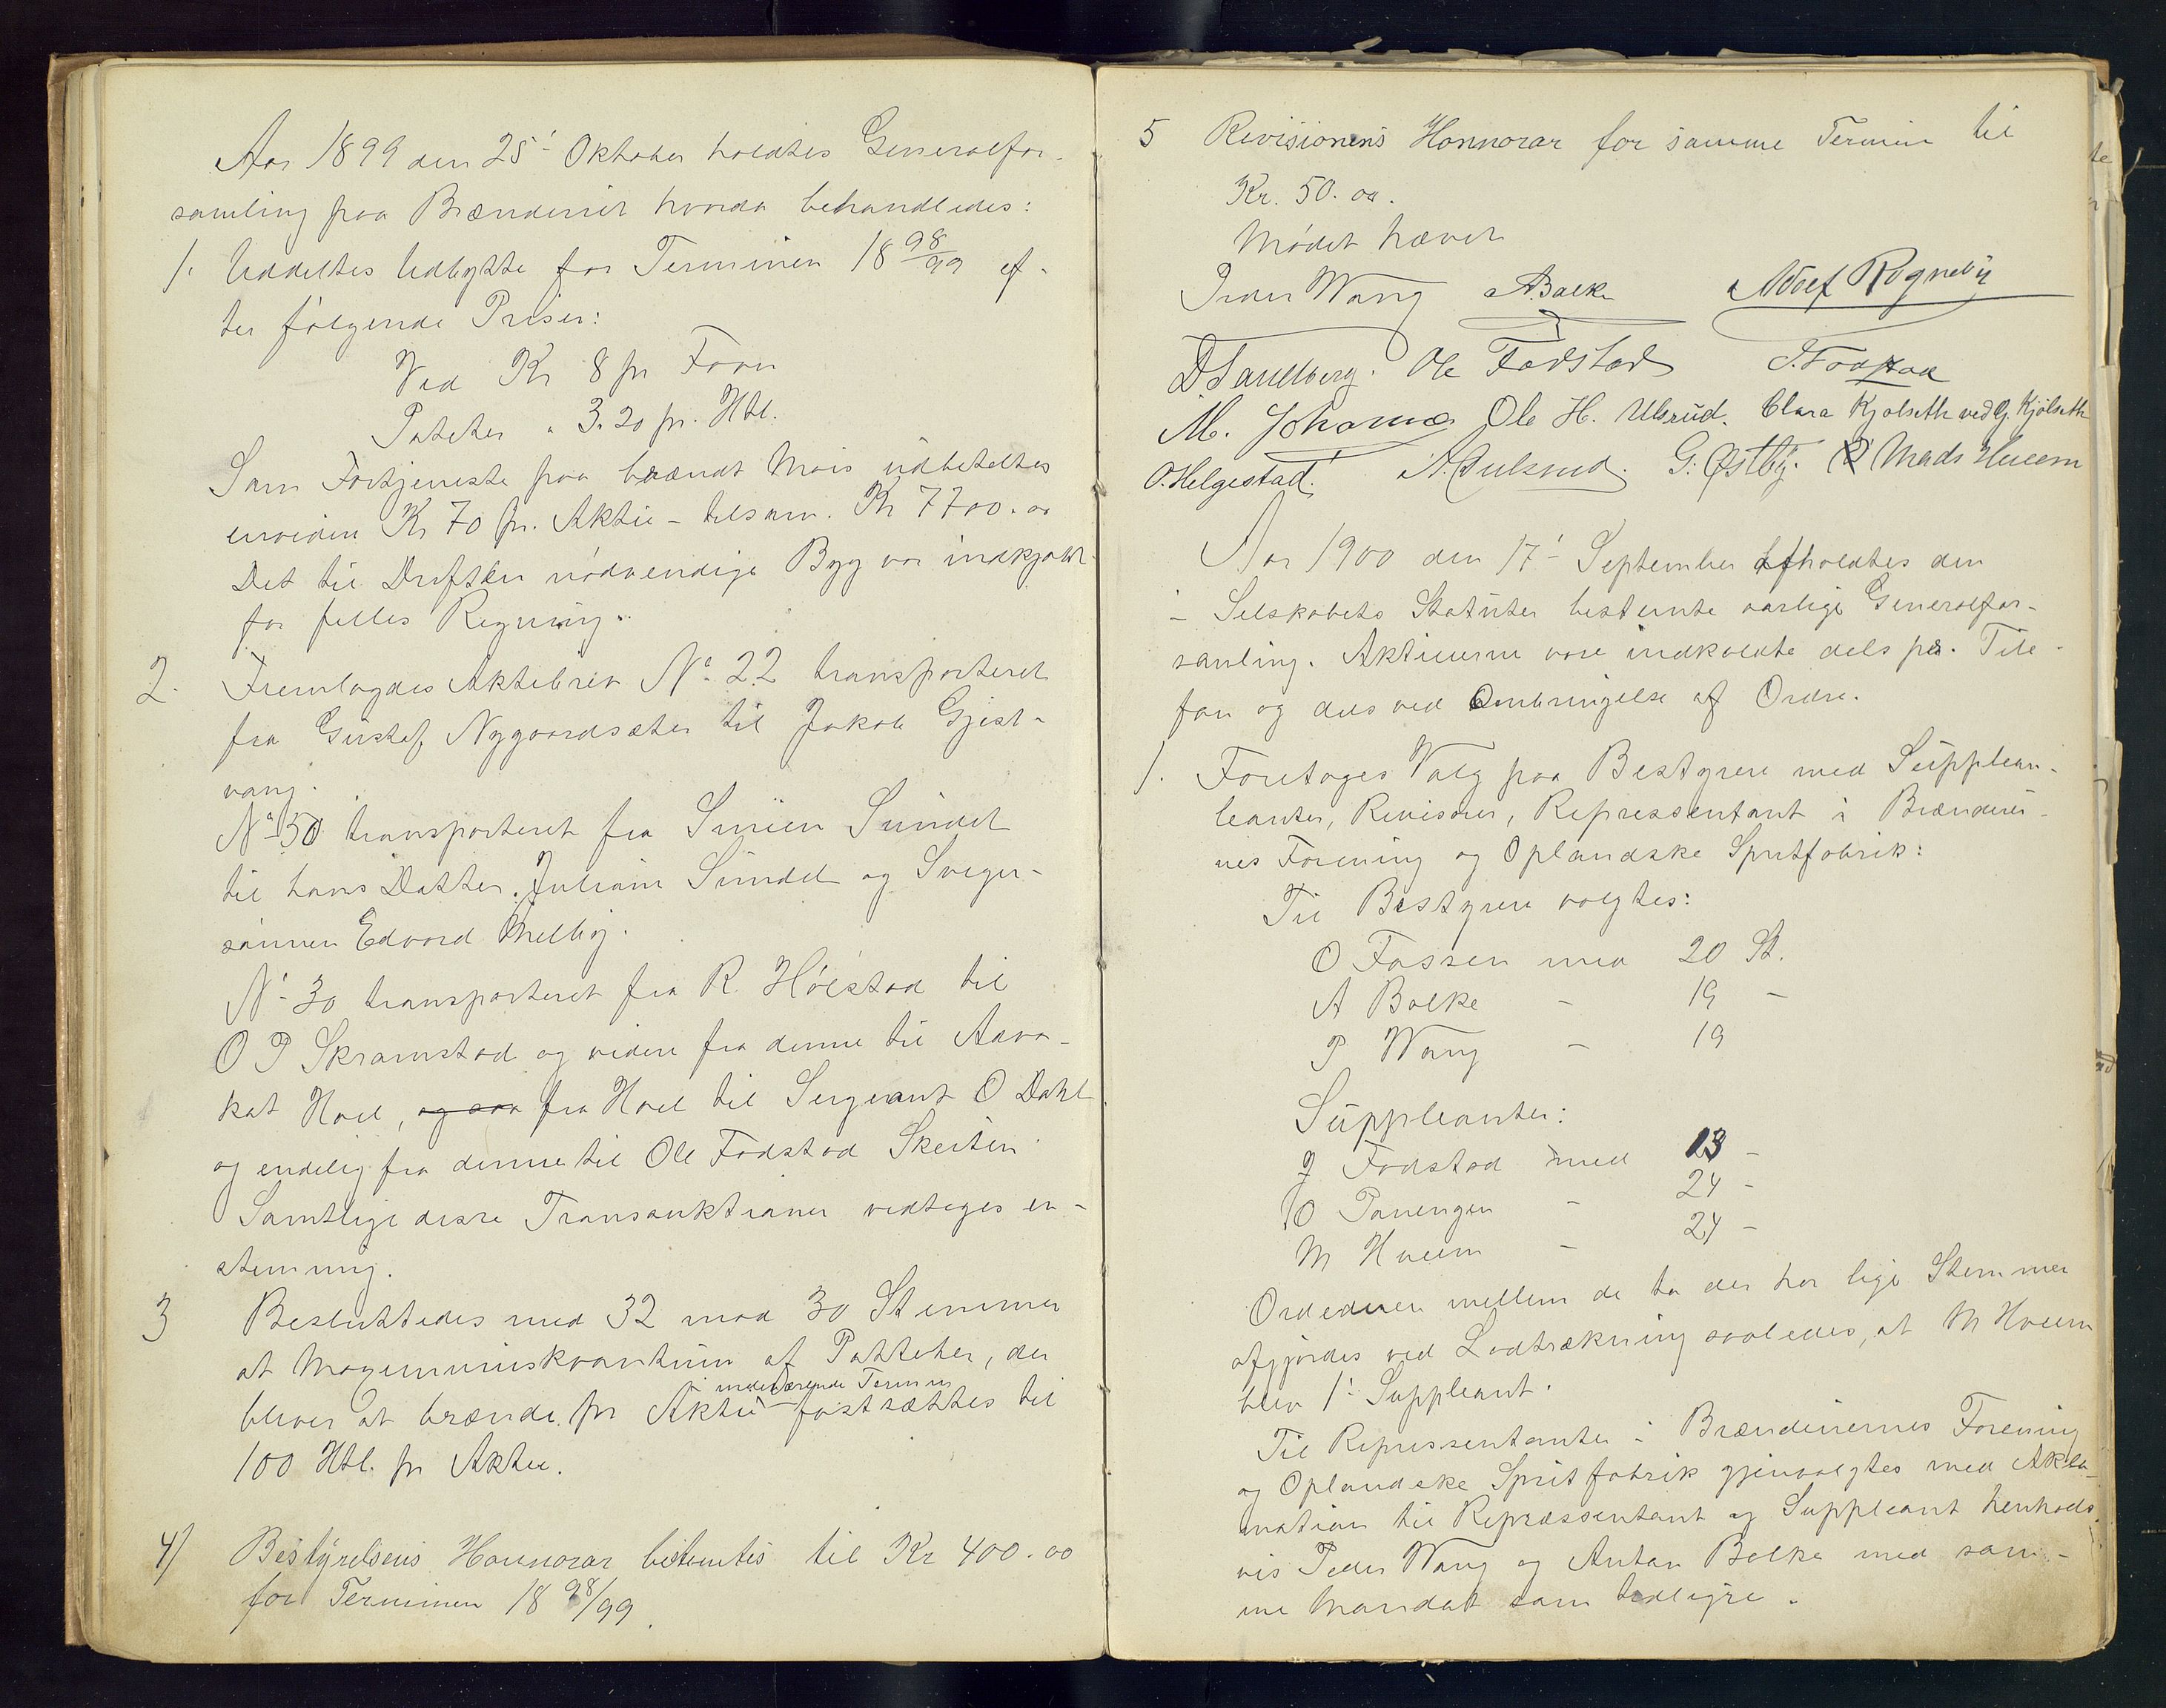 Aar 1899 den 25' Oktober holdtes Generalfor-
samling paa Brænderiet hvorda behandledes:
1. Uddeltes Udbytte for Terminen 18 98/99 ef-
ter følgende Priser:
Ved Kr 8 pr Favn
Poteter " 3.20 pr. Htl.
Som Fortjeneste paa brændt Mais udbetaltes
Kr 70 pr. Aktie - tilsam. Kr 7700.00
Det til Driften nødvendige Byg var indkjøbt
for felles Regning.
2. Fremlagdes Aktiebrev No 22 transporteret
fra Gustaf Nygaardsæter til Jakob Gjest-
vang.
No 50 transporteret fra Simen Sundet
til hans Datter Juliane Sundet og Sviger-
sønnen Edvard Melby.
No 30 transporteret fra R. Hølstad til
O P Skramstad og videre fra denne til Advo-
kat Hoel, og saa fra Hoel til Sergeant O Dahl
og endelig fra denne til Ole Fodstad Skeiten
Samtlige disse Transauktioner vedtoges en-
stemmig.
3 Besluttedes med 32 mod 30 Stemmer
at Magemumskvantum af Potteter, der
inværende Termin
bliver at brænde pr Aktie fastsættes til
100 Htl. pr Aktie.
4) Bestyrelsens Honnorar bestemtes til Kr 400.00
for Terminen 18 98/99.
5 Revisionens Honnorar for samme Termin til
Kr. 50.00.
Mødet hævet
Peder Wang ABalke Adolf Rogneby
D Sandberg. Ole Fodstad J. Fodstad
M. Ole H. Ulsrud. Clara Kjølseth ved G. Kjölseth
O. Helgestad. A. Julsrud. G. Østby. Mads Hveem
Aar 1900 den 17' September afholdtes den
i Selskabets Statuter bestemte aarlige Generalfor-
samling. Aktieerne vare indkaldte dels pr. Tele-
fon og dels ved Ombringelse af Ordre.
1. Foretoges Valg paa Bestyrere med Supplean-
leanter, Revisorer, Repressentant i Brænderier-
nes Forening og Oplandske Spritfabrik:
Til Bestyrere valgtes:
O Fossen med 20 St.
A Balke - 19 -
P Wang - 19
Suppleanter:
J Fodstad med 13 -
O Panengen - 24 -
M Hveem - 24 -
Ordenen mellem de to der har lige Stemmer
afgjørdes ved Lodtrækning saaledes, at M Hveem
blev 1' Suppleant.
Til Repressentanter i Brænderiernes Forening
og Oplandske Spritfabrik gjenvalgtes med Akla-
mation til Repræssentant og Suppleant henholds-
vis Peder Wang og Anton Balke med sam-
me Mandat som tidligre.